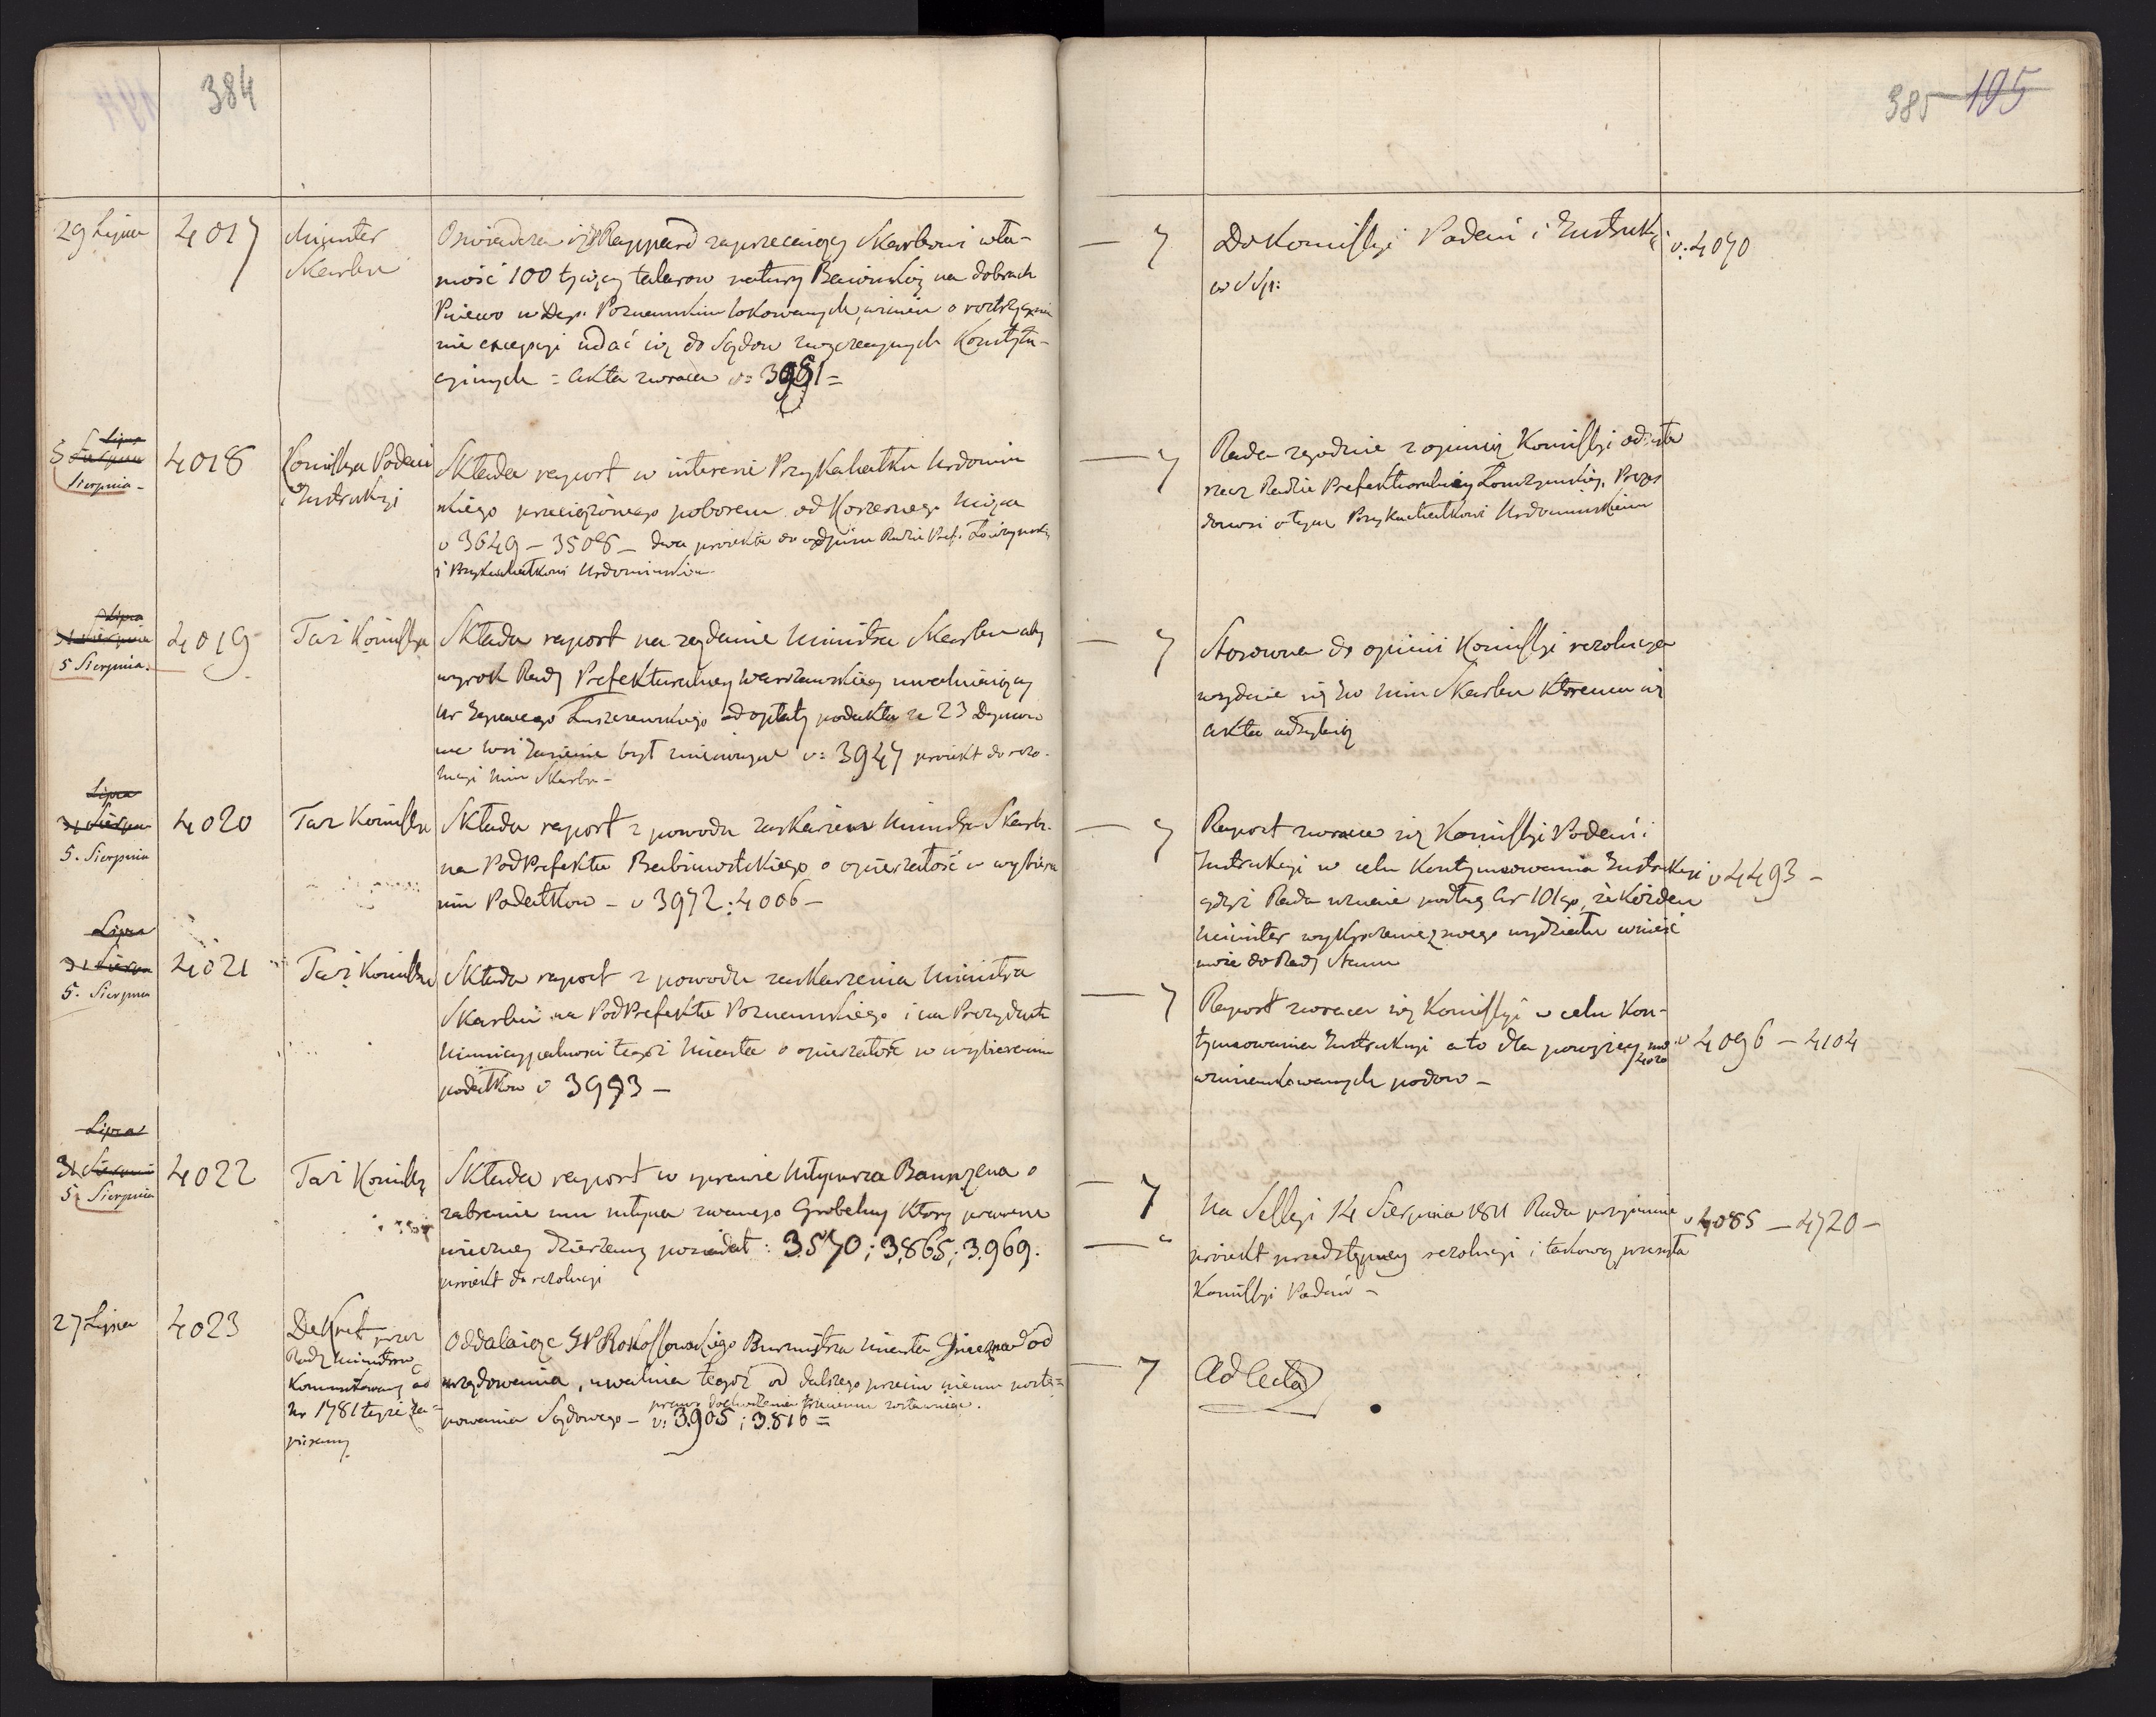 384
29 Lipca
4017
Minister
Skarbu
Oświadcza iż Rappard zaprzeczaiący Skarbowi wła-
sność 100 tysięcy talarow natury Baionskiey na dobrach
Pniewo w Dep. Poznanskim lokowanych, winien o rostrzygnie
nie excepcyi udać się do Sądow zwyczaynych Konstytu-
cyinych = akta zwraca v: 3981 =
— 7
Do Komissyi Podań i Instrukcyi
v: 4070
Lipca
5 Sierpnia
Sierpnia -
4018
Komissya Podań
i Instrukcyi
Składa raport w interesie Przykahałku Urdomin
skiego przeciążonego poborem od Koszernego Mięsa
v 3649 - 3508 - dwa proiekta do expedycyi Radzie Pref. Łomżynskiey
i Przykahałkowi Urdominskiemu
— 7
Rada zgodnie z opinią Komissyi odsyła
rzecz Radzie Prefekturalney Łomżynskiey, Prezes
donosi o tym Przykahałkowi Urdominskiemu
Lipca
31 Sierpnia
5 Sierpnia.
4019
Taż Komissya
Składa raport na żądanie Ministra Skarbu aby
wyrok Rady Prefekturalney Warszawskiey uwalniaiący
Ur Ignacego Łuszczewskiego od opłaty podatku z 23 Dymow
we wsi był zmieniony v: 3947 proiekt do rezo-
lucyi Min Skarbu -
— 7
Stosowna do opinii Komissyi rezolucya
wydaie się do Min Skarbu Ktoremu się
akta odsyłaią
Lipca
31 Sierpn
5. Sierpnia
4020
Taż Komissya
Składa raport z powodu zaskarżenia Ministra Skarbu
na PodPrefekta Babimostskiego o opieszałość w wybiera
niu Podatkow - v 3972 : 4006 -
— 7
Raport zwraca się Komissyi Podań i
Instrukcyi w celu Kontynuowania Instrukcyi
gdyż Rada uznaie podług Ar 101go, że Każden
Minister wykroczenie swego wydziału wnieść
może do Rady Stanu
v 4493 -
Lipca
31 Sierpn
5. Sierpnia
4021
Taż Komissya
Składa raport z powodu zaskarżenia Ministra
Skarbu na PodPrefekta Poznanskiego i na Prezydenta
Municypalności tegoż Miasta o opieszałość w wybieraniu
podatkow v 3973 -
— 7
Raport zwraca się Komissyi w celu Kon-
tynuowania Instrukcyi a to dla powyżey nro 4020
wzmiankowanych powodow -
v 4096 - 4104
Lipca
31 Sierpnia
5 Sierpnia
4022
Taż Komissya
Składa raport w sprawie Młynarza o
zabranie mu młyna zwanego Grobelny Ktory prawem
wieczney dzierżawy posiadał : 3.570 ; 3.865 ; 3.969.
proiekt do rezolucyi
— 7
Na Sessyi 14 Sierpnia 1811 Rada przyimuie
proiekt przedstępney rezolucyi i takową przesyła
Komissyi Podań -
v 4085 - 4720 -
27 Lipca
4023
Dekret przez
Radę Ministrow
Kommunikowany ad
Nr 1781 tegoż za-
pisany
Oddalaiąc JP Rokossowskiego Burmistrza Miasta Gniezna od
urzędowania, uwalnia tegoż od dalszego przeciw niemu postę-
powania Sądowego - v: 3.905 ; 3.810 =
— 7
Ad Acta
385 195